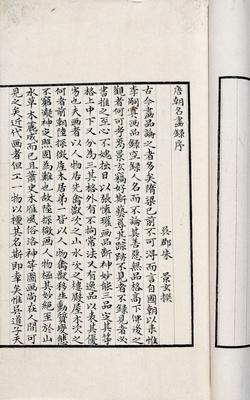 唐朝名畫錄序
吳郡朱景玄撰
古今畫品論之者多矣隋梁已前不可得而言自國朝以來惟
李嗣真畫品錄空錄人名而不論其善惡無品格高下俾後之
觀者何可考焉景玄竊好斯藝尋其蹤跡不見者不錄見者必
書推之至心不愧拙目以張懷瓘畫品斷神妙能三品定其等
格上中下又分為三其格外有不拘常法又有逸品以表其優
劣也夫畫者以人物居先禽獸次之山水次之樓殿屋木次之
何者前朝陸探微屋木居第一皆以人物禽獸移生動質變態
不窮凝神定照固為難也故陸探微畫人物極其妙絕至於山
水草木粗成而已且蕭史木雁風俗洛神等圖畫尚在人間可
見之矣近代畫者但工一物以擅其名斯即幸矣惟吳道子天